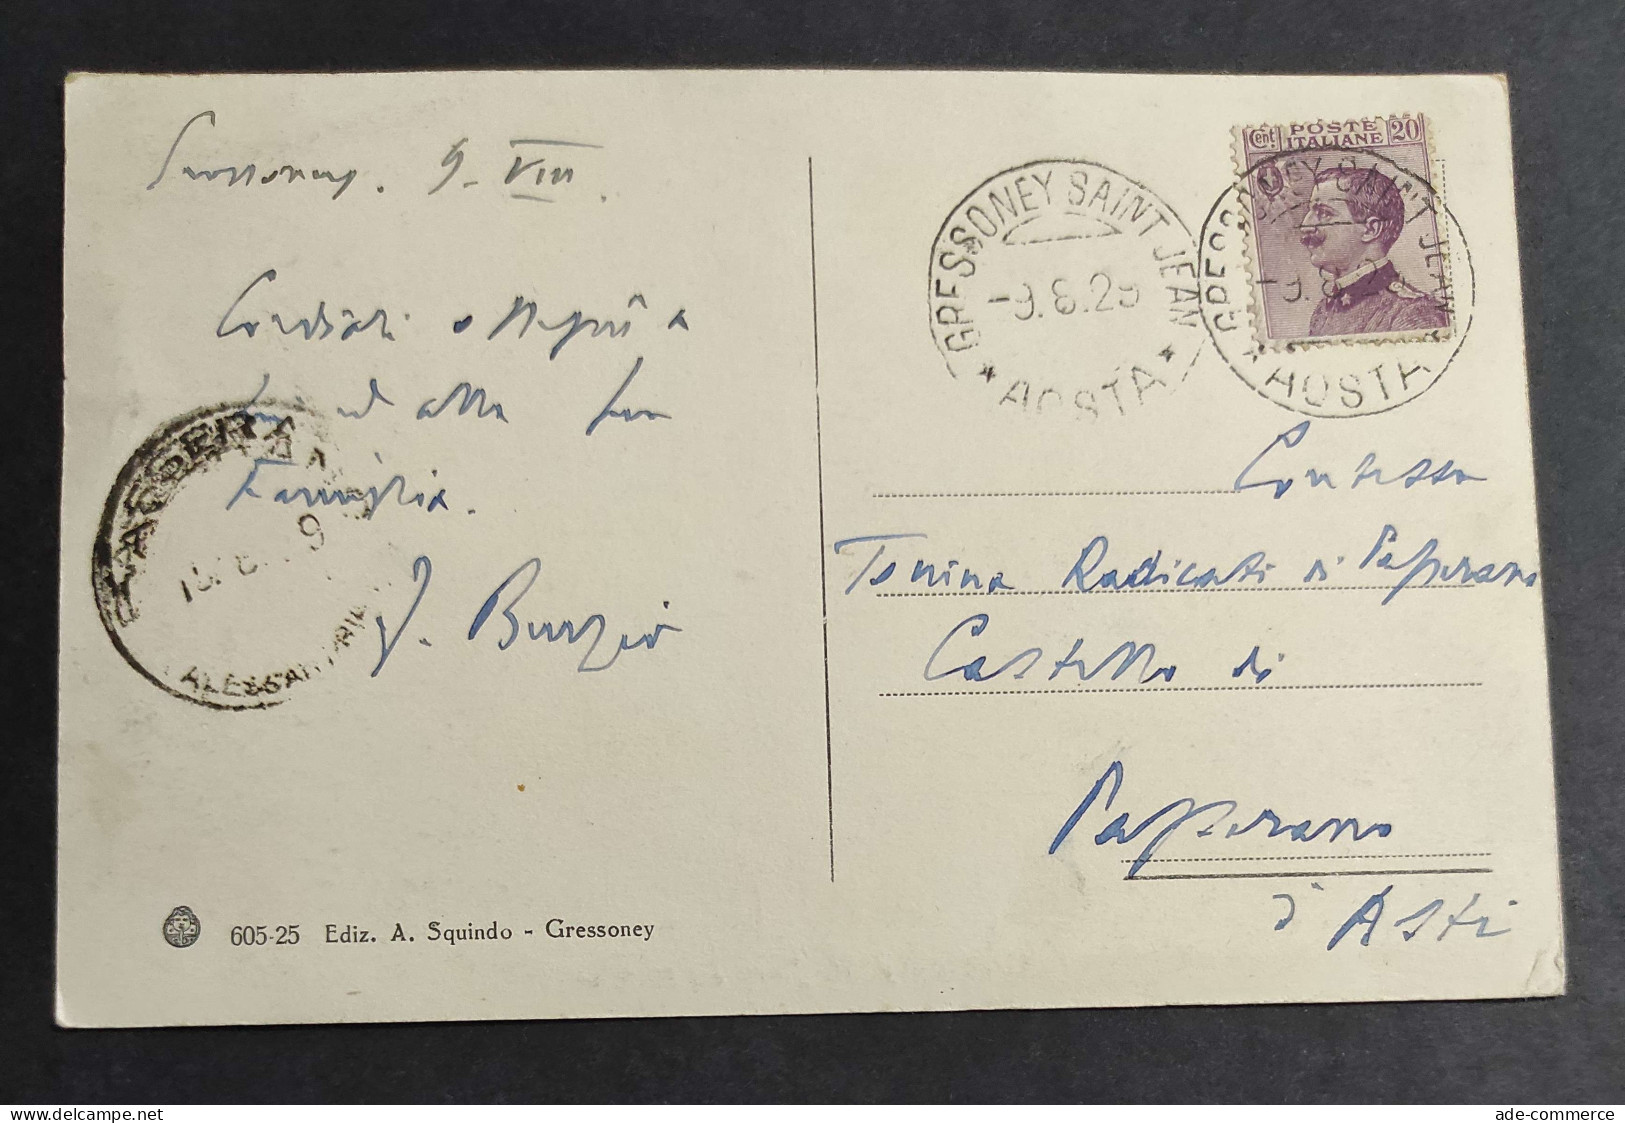 Gressoney. 9. VIII.
Cordiali ossequi a
Lei ed alla sua
Famiglia.
J. Burzio
PASSERANO
ALESSANDRIA
605-25 Ediz. A. Squindo - Gressoney
GRESSONEY SAINT JEAN
-9.8.29
* AOSTA *
Cent. POSTE ITALIANE 20
GRESSONEY SAINT JEAN
-9.8.29
* AOSTA *
Contessa
Tonina Radicati di Passerano
Castello di
Passerano
d'Asti
ade-commerce
delcampe.net